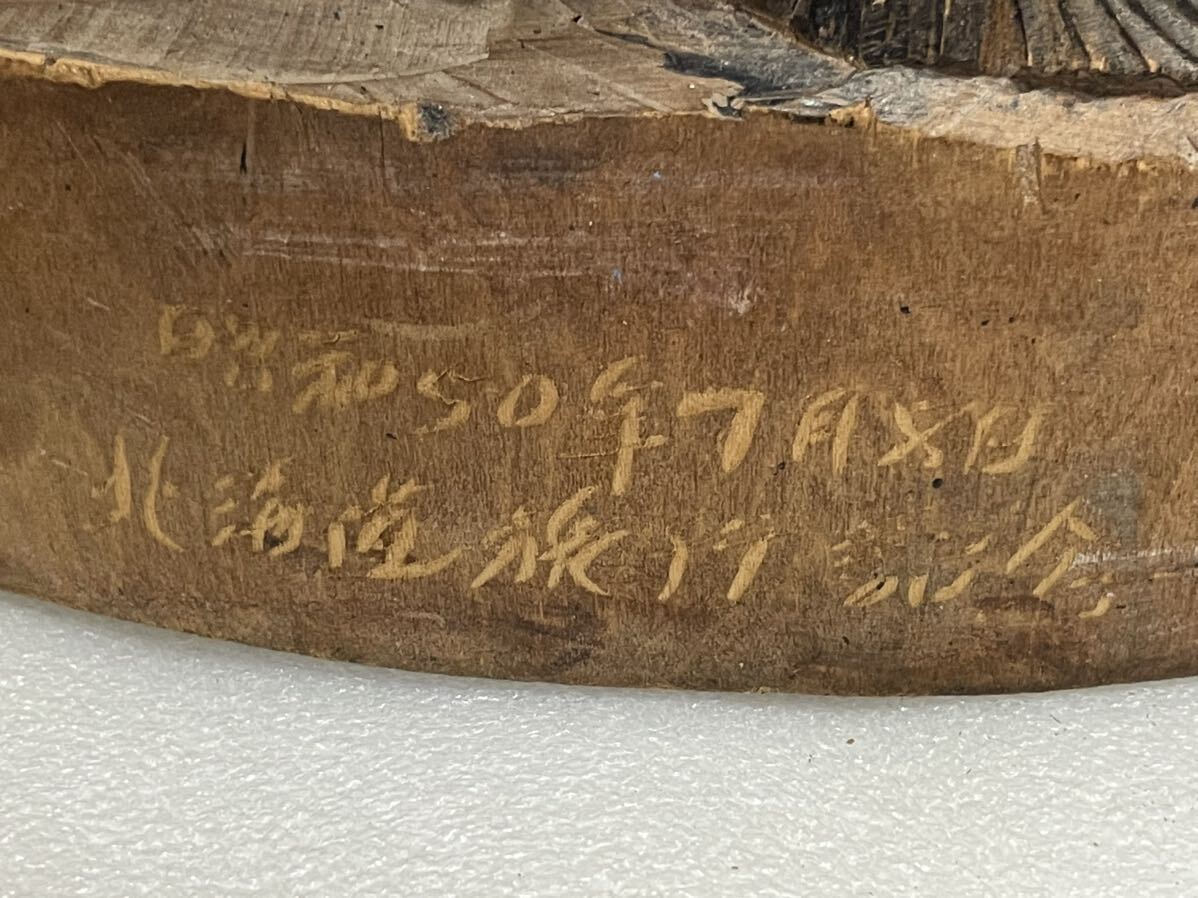 昭和50年7月吉日
北海道旅行記念